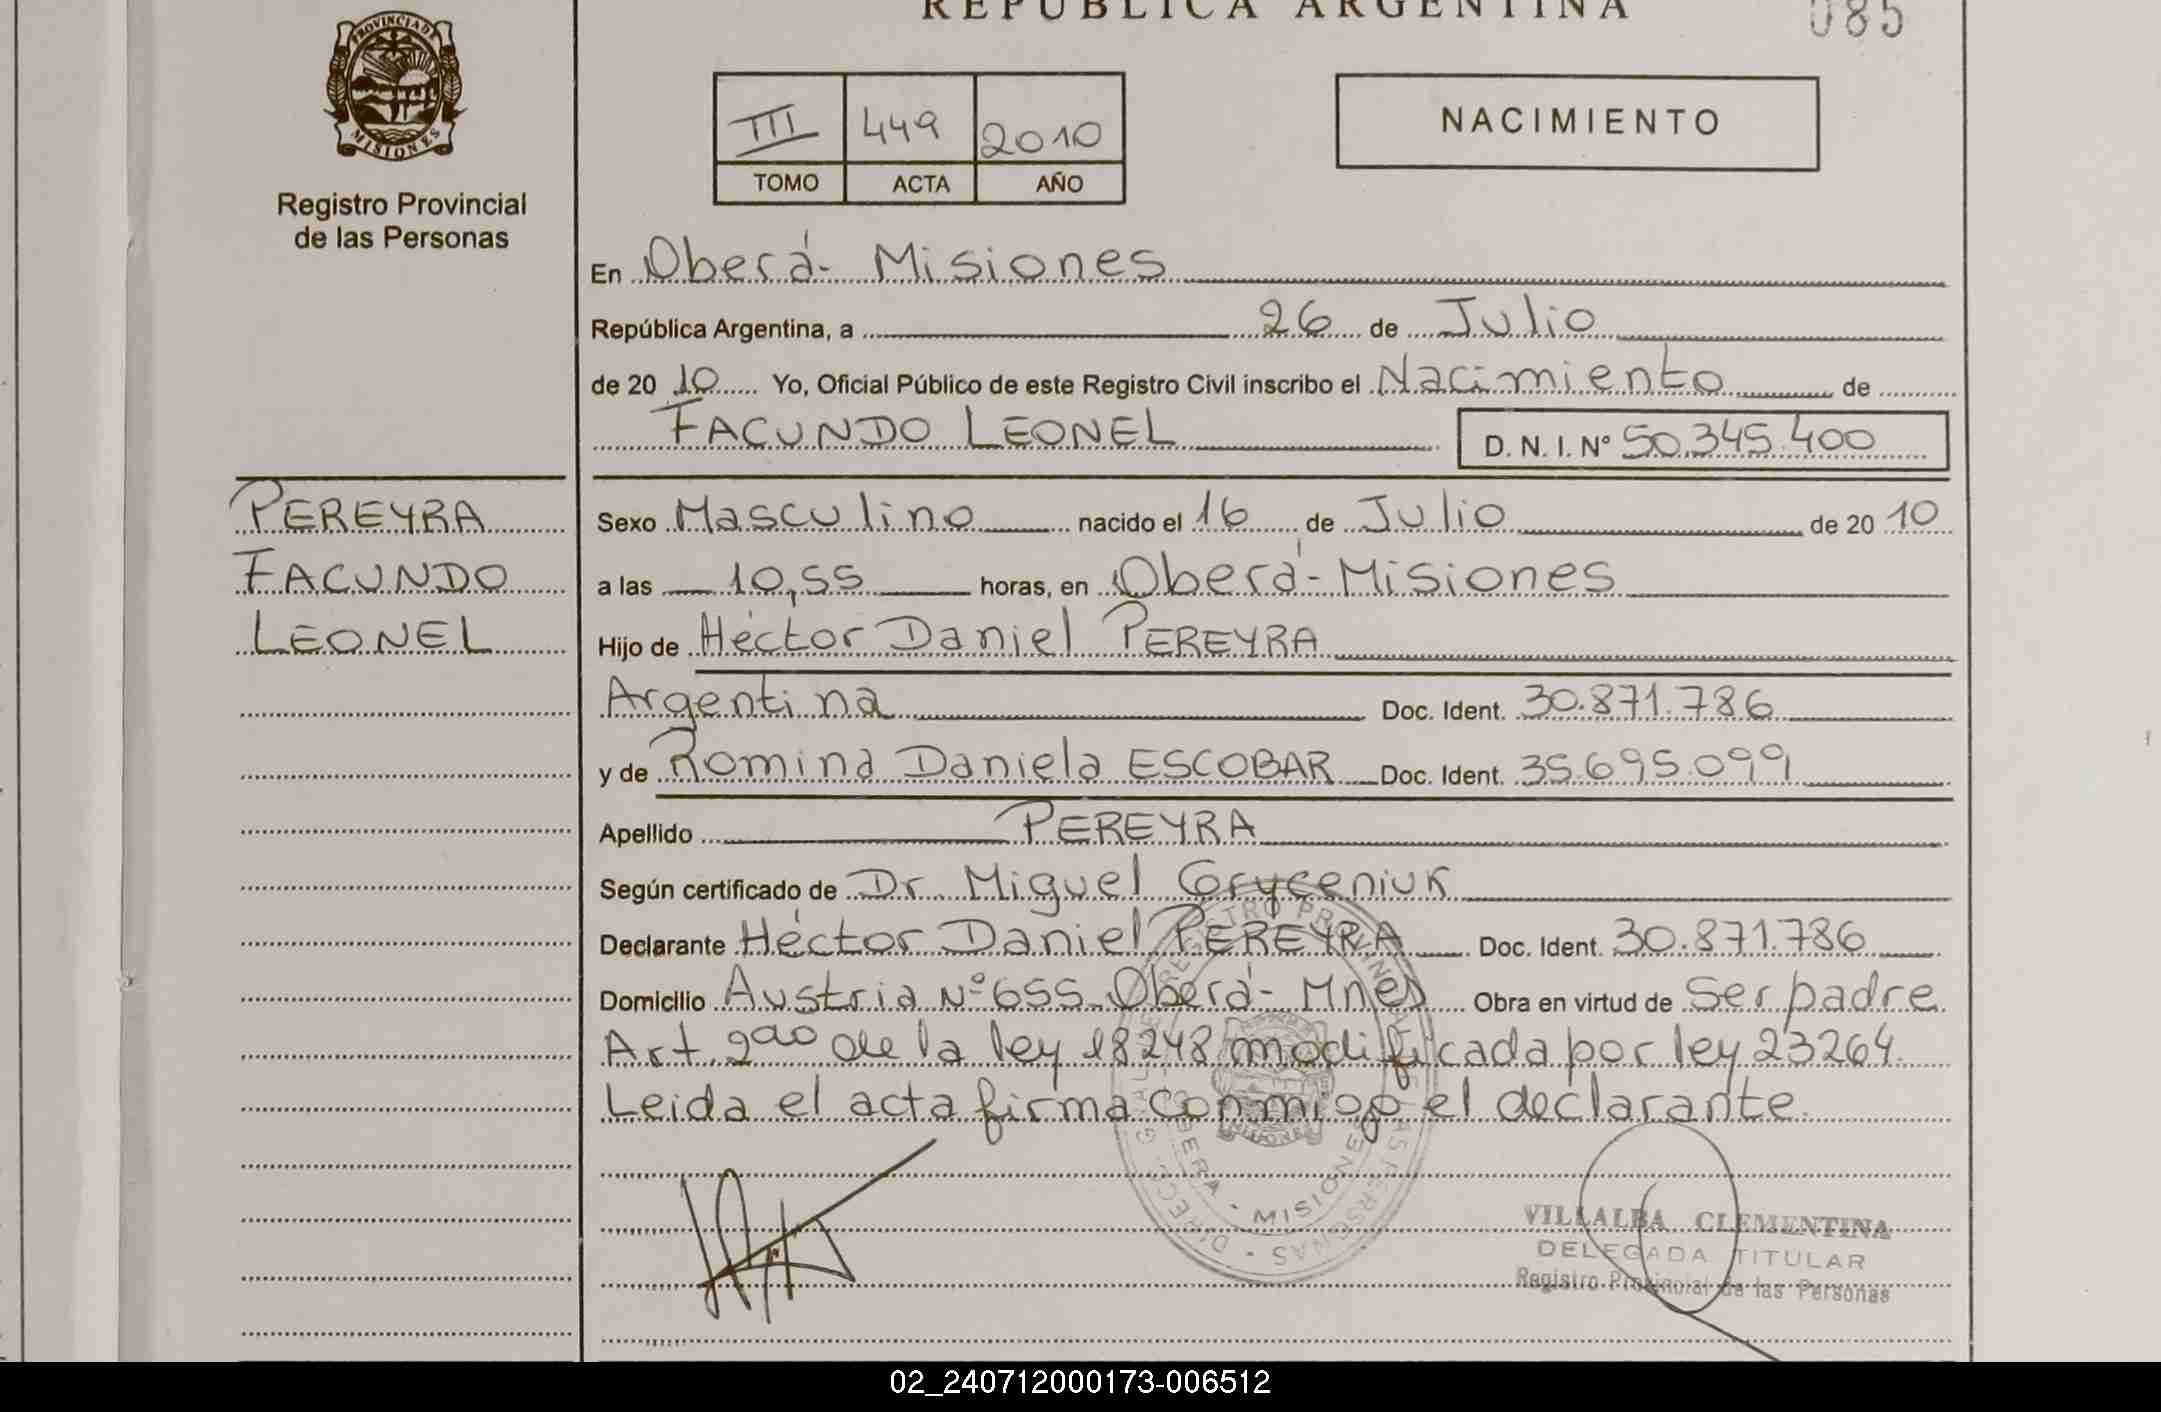 REPÚBLICA ARGENTINA
085
PROVINCIA DE
MISIONES
Registro Provincial
de las Personas
III 449 2010
TOMO ACTA AÑO
NACIMIENTO
En Oberá- Misiones
República Argentina, a 26 de Julio
de 20 10 Yo, Oficial Público de este Registro Civil inscribo el Nacimiento de
FACUNDO LEONEL D. N. I. Nº 50.345.400
PEREYRA
FACUNDO
LEONEL
Sexo Masculino nacido el 16 de Julio de 20 10
a las 10,55 horas, en Oberá-Misiones
Hijo de Héctor Daniel PEREYRA
Argentina Doc. Ident. 30.871.786
y de Romina Daniela ESCOBAR Doc. Ident. 35.695.099
Apellido PEREYRA
Según certificado de Dr. Miguel Gryceniuk
Declarante Héctor Daniel PEREYRA Doc. Ident. 30.871.786
Domicilio Austria Nº 655-Oberá- Mnes Obra en virtud de Ser padre
Art. 2do de la ley 18248 modificada por ley 23264.
Leida el acta firma conmigo el declarante.
MISIONES
VILLALBA CLEMENTINA
DELEGADA TITULAR
Registro Provincial de las Personas
02_240712000173-006512